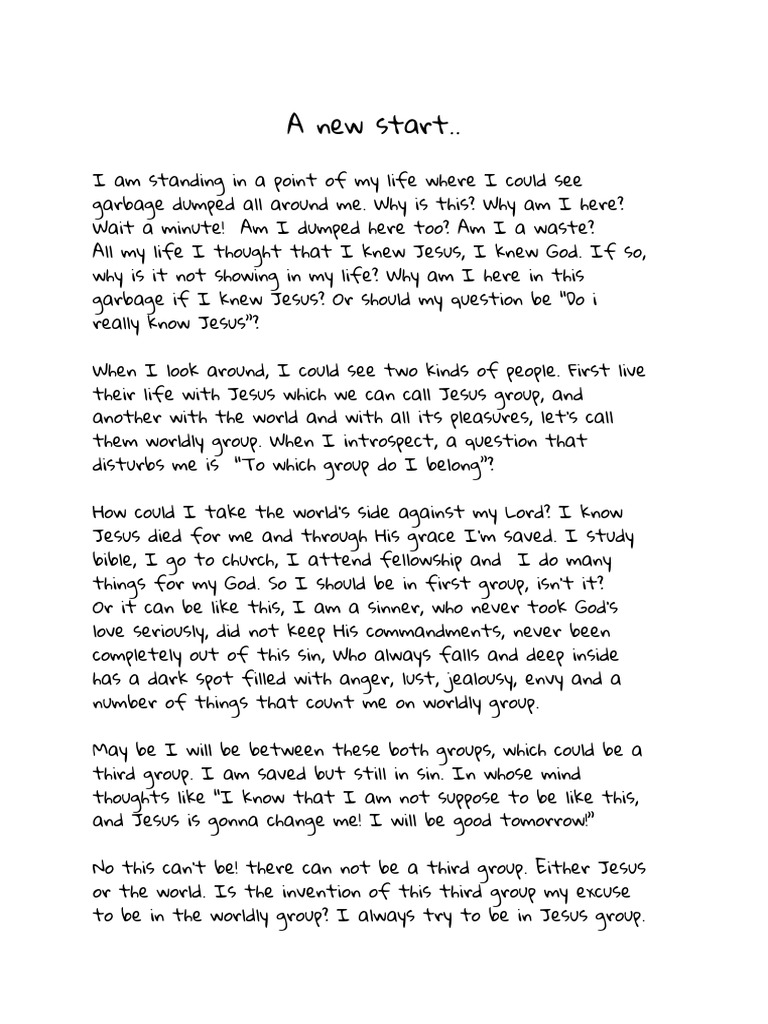 A new start..
I am standing in a point of my life where I could see
garbage dumped all around me. Why is this? Why am I here?
Wait a minute!  Am I dumped here too? Am I a waste?
All my life I thought that I knew Jesus, I knew God. If so,
why is it not showing in my life? Why am I here in this
garbage if I knew Jesus? Or should my question be "Do i
really know Jesus"?
When I look around, I could see two kinds of people. First live
their life with Jesus which we can call Jesus group, and
another with the world and with all its pleasures, let's call
them worldly group. When I introspect, a question that
disturbs me is  "To which group do I belong"?
How could I take the world's side against my Lord? I know
Jesus died for me and through His grace I'm saved. I study
bible, I go to church, I attend fellowship and  I do many
things for my God. So I should be in first group, isn't it?
Or it can be like this, I am a sinner, who never took God's
love seriously, did not keep His commandments, never been
completely out of this sin, Who always falls and deep inside
has a dark spot filled with anger, lust, jealousy, envy and a
number of things that count me on worldly group.
May be I will be between these both groups, which could be a
third group. I am saved but still in sin. In whose mind
thoughts like "I know that I am not suppose to be like this,
and Jesus is gonna change me! I will be good tomorrow!"
No this can't be! there can not be a third group. Either Jesus
or the world. Is the invention of this third group my excuse
to be in the worldly group? I always try to be in Jesus group.